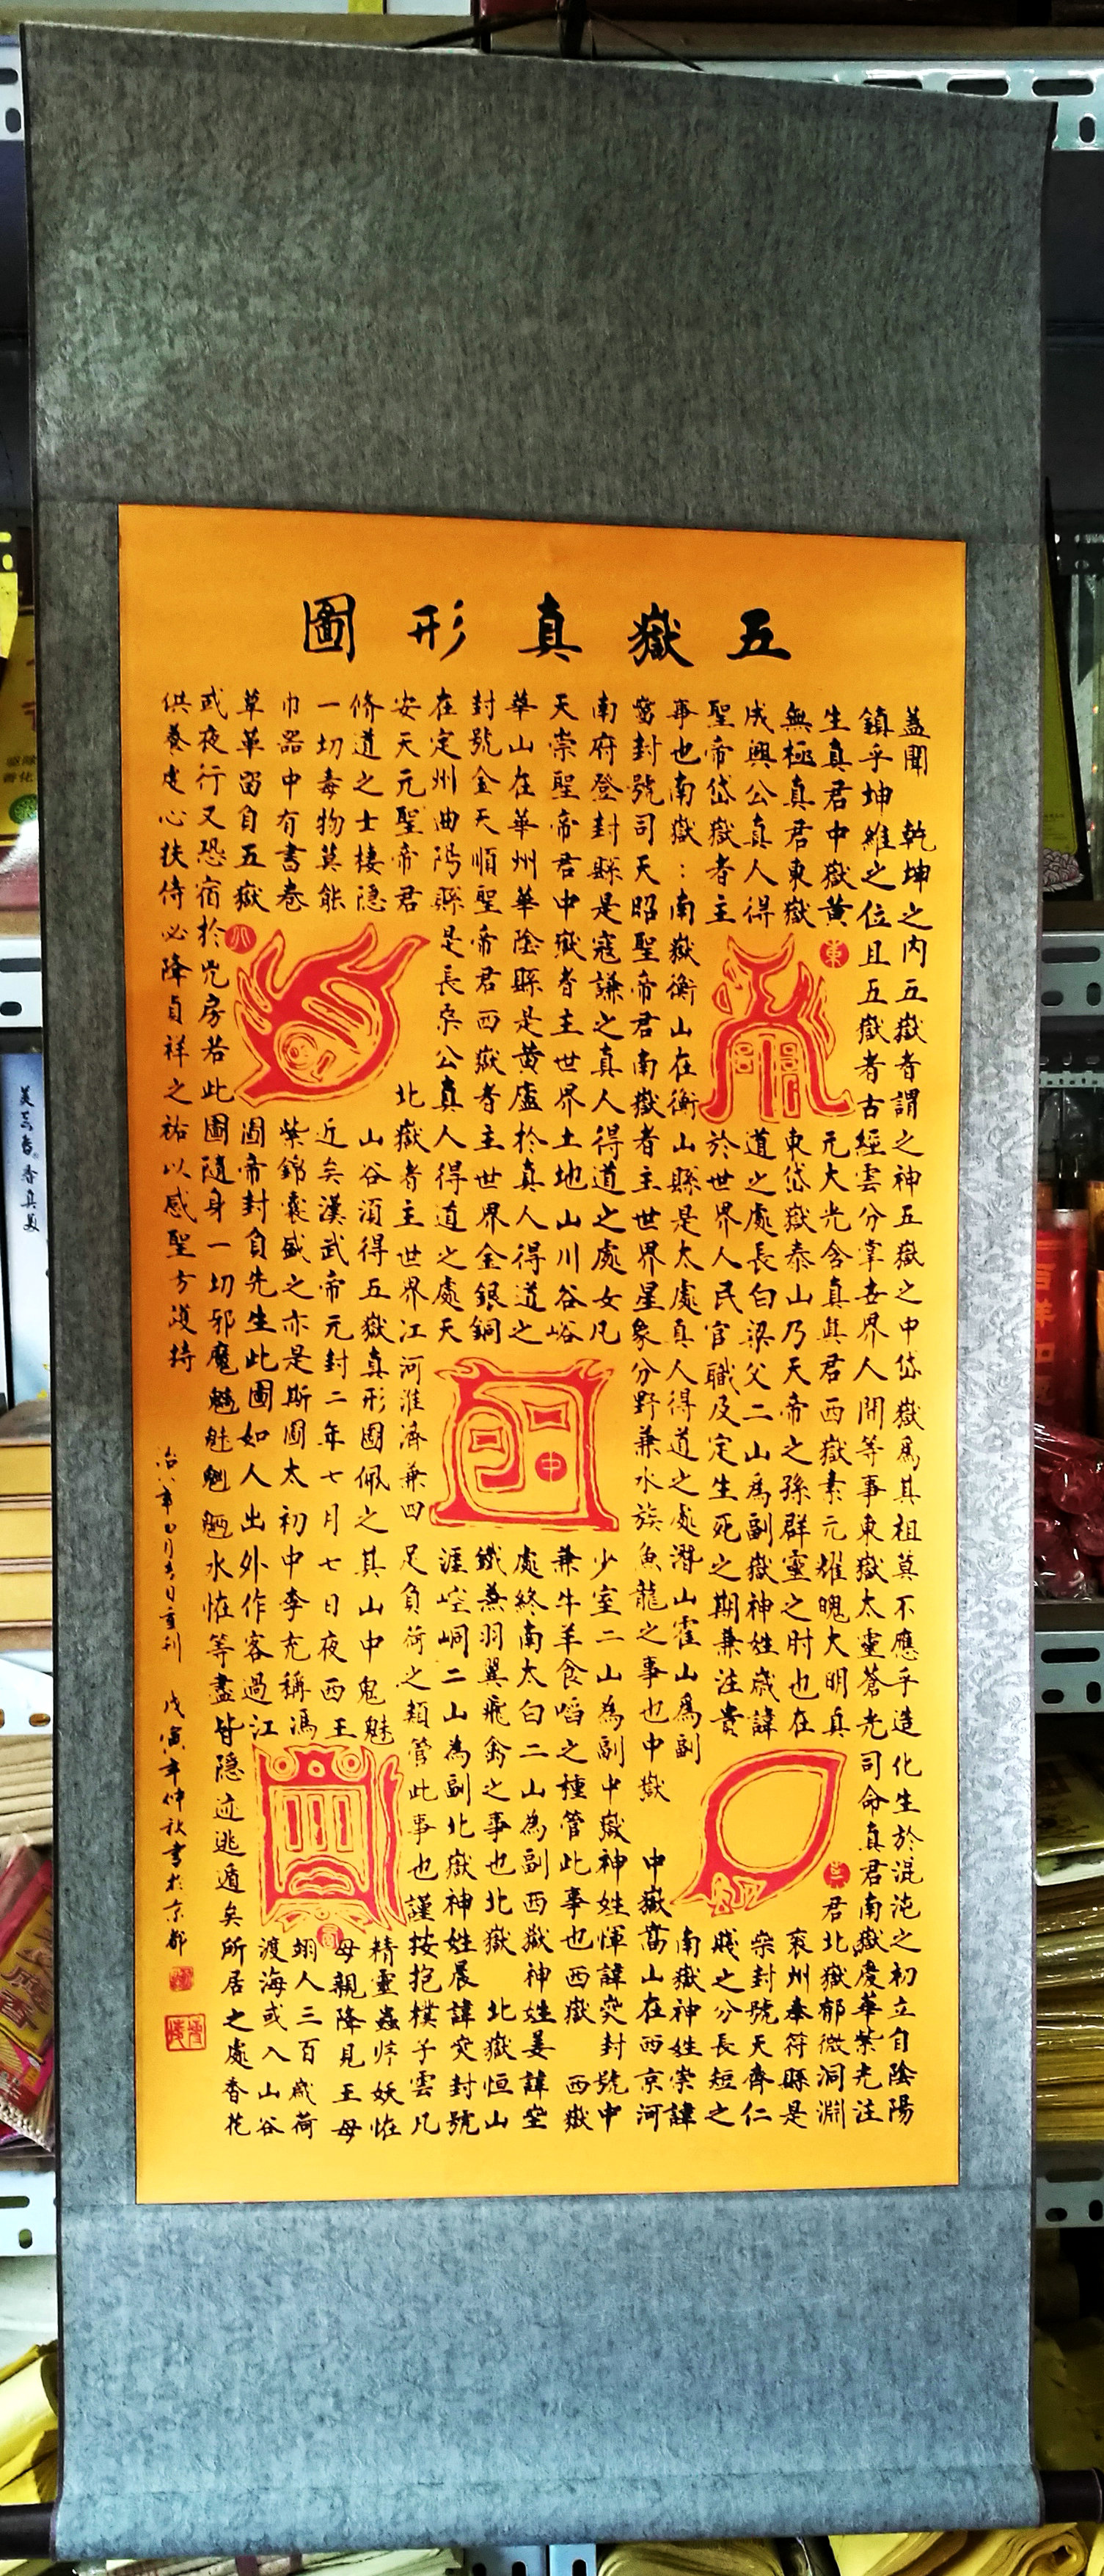 五嶽真形圖
蓋聞 乾坤之内五嶽者謂之神五嶽之中岱嶽為其祖莫不應乎造化生於混沌之初立自陰陽
鎮乎坤維之位且五嶽者古經雲分掌世界人間等事東嶽太靈蒼光司命真君南嶽慶華紫光注
生真君中嶽黃元大光含真真君西嶽素元耀魄大明真君北嶽郁微洞淵
無極真君東嶽東岱嶽泰山乃天帝之孫群靈之肘也在兗州奉符縣是
成興公真人得道之處長白梁父二山為副嶽神姓歲諱崇封號天齊仁
聖帝岱嶽者主於世界人民官職及定生死之期兼注貴賤之分長短之
事也南嶽：南嶽衡山在衡山縣是太處真人得道之處潛山霍山為副南嶽神姓崇諱
封號司天昭聖帝君南嶽者主世界星象分野兼水族魚龍之事也中嶽 中嶽嵩山在西京河
南府登封縣是寇謙之真人得道之處女凡少室二山為副中嶽神姓惲諱突封號中
天崇聖帝君中嶽者主世界土地山川谷峪兼牛羊食啗之種管此事也西嶽 西嶽
華山在華州華陰縣是黃盧於真人得道之處終南太白二山為副西嶽神姓姜諱
封號金天順聖帝君西嶽者主世界金銀銅鐵兼羽翼飛禽之事也北嶽 北嶽恒山
在定州曲陽縣是長桑公真人得道之處天涯崆峒二山為副北嶽神姓晨諱突封號
安天元聖帝君北嶽者主世界江河淮濟兼四足負荷之類管此事也謹按抱樸子雲凡
修道之士棲隱山谷須得五嶽真形圖佩之其山中鬼魅精靈蟲妖怪
一切毒物莫能近矣漢武帝元封二年七月七日夜西王母親降見王母
巾器中有書卷紫錦囊盛之亦是斯圖太初中李充稱馮翊人三百歲荷
草革留負五嶽圖帝封負先生此圖如人出外作客過江渡海或入山谷
或夜行又恐宿於兇房若此圖隨身一切邪魔魑魅魍魎水怪等盡皆隱迹逃遁矣所居之處香花
供養虔心扶侍必降貞祥之祐以感聖方護持
治八年四月吉日重刊 戊寅年仲秋書於京都
東
中